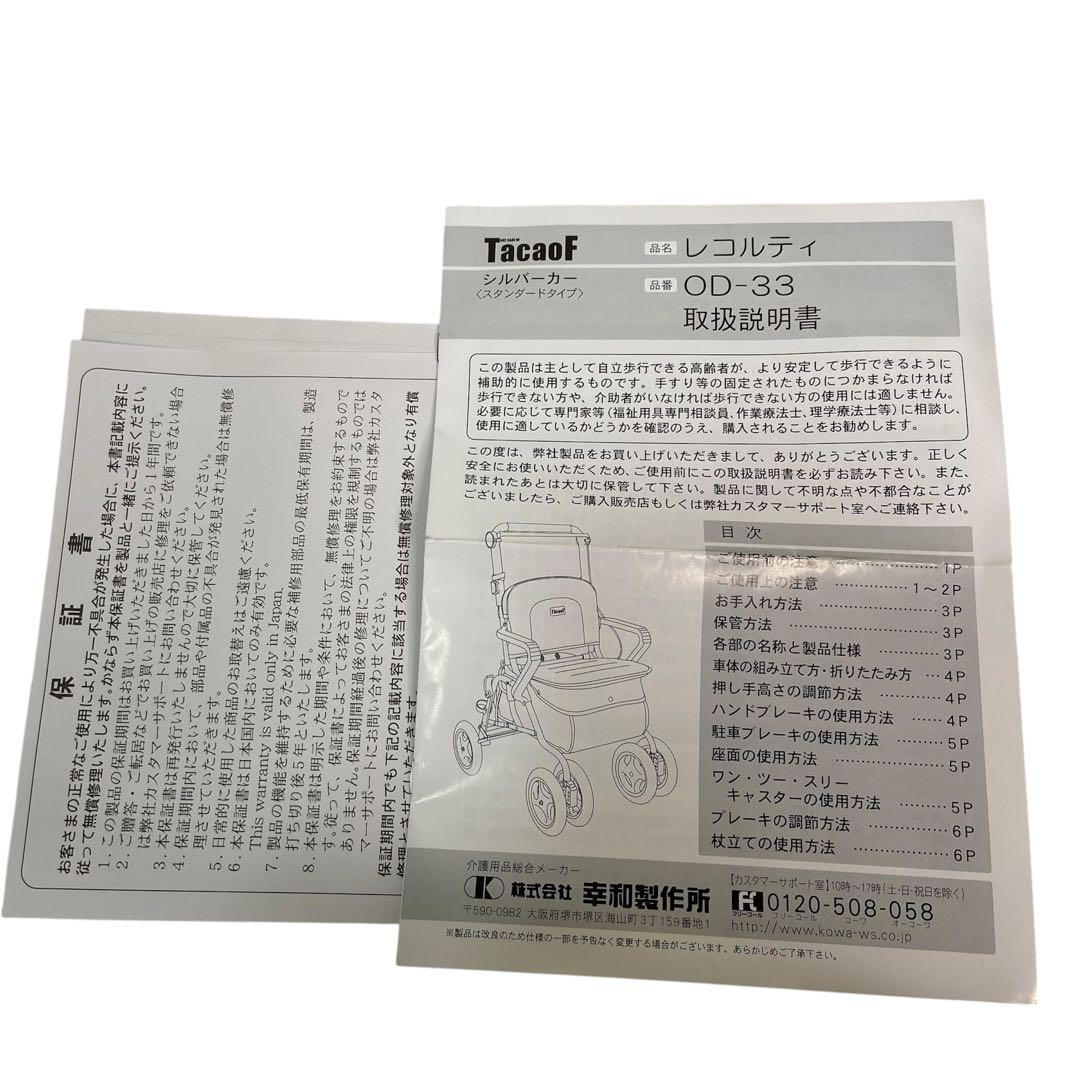 保証書
お客さまの正常なご使用により万一不具合が発生した場合に、本書記載内容に
従って無償修理いたします。かならず本保証書を製品と一緒にご提示ください。
1. この製品の保証期間はお買い上げいただきました日から1年間です。
2. ご贈答・ご転居などでお買い上げの販売店に修理をご依頼できない場合
は弊社カスタマーサポートにお問い合わせください。
3. 本保証書は再発行いたしませんので大切に保管してください。
4. 保証期間内において、部品や付属品の不具合が発見された場合は無償修
理させていただきます。
5. 日常的に使用した商品のお取替えはご遠慮ください。
6. 本保証書は日本国内においてのみ有効です。
This warranty is valid only in Japan.
7. 製品の機能を維持するために必要な補修用部品の最低保有期間は、製造
打ち切り後5年といたします。
8. 本保証書は明示した期間や条件において、無償修理をお約束するもので
す。従って、保証書によってお客さまの法律上の権限を規制するものでは
ありません。保証期間経過後の修理についてご不明の場合は弊社カスタ
マーサポートにお問い合わせください。
保証期間内でも下記の記載内容に該当する場合は無償修理対象外となり有償
修理とさせていただきます。
TacaoF
シルバーカー
〈スタンダードタイプ〉
品名 レコルティ
品番 OD-33
取扱説明書
この製品は主として自立歩行できる高齢者が、より安定して歩行できるように
補助的に使用するものです。手すり等の固定されたものにつかまらなければ
歩行できない方や、介助者がいなければ歩行できない方の使用には適しません。
必要に応じて専門家等(福祉用具専門相談員、作業療法士、理学療法士等)に相談し、
使用に適しているかどうかを確認のうえ、購入されることをお勧めします。
この度は、弊社製品をお買い上げいただきまして、ありがとうございます。正しく
安全にお使いいただくため、ご使用前にこの取扱説明書を必ずお読み下さい。また、
読まれたあとは大切に保管して下さい。製品に関して不明な点や不都合なことが
ございましたら、ご購入販売店もしくは弊社カスタマーサポート室へご連絡下さい。
TacaoF
目次
ご使用前の注意 ………… 1P
ご使用上の注意 ………… 1～2P
お手入れ方法 ………… 3P
保管方法 ………… 3P
各部の名称と製品仕様 ………… 3P
車体の組み立て方・折りたたみ方 … 4P
押し手高さの調節方法 ………… 4P
ハンドブレーキの使用方法 …… 4P
駐車ブレーキの使用方法 ……… 5P
座面の使用方法 ………… 5P
ワン・ツー・スリー
キャスターの使用方法 ……… 5P
ブレーキの調節方法 ………… 6P
杖立ての使用方法 ………… 6P
介護用品総合メーカー
株式会社 幸和製作所
〒590-0982 大阪府堺市堺区海山町3丁159番地1
【カスタマーサポート室】10時～17時(土・日・祝日を除く)
フリーコール 0120-508-058
フリーコール コーワ オーコーワ
http://www.kowa-ws.co.jp
※製品は改良のため仕様の一部を予告なく変更する場合がございます。あらかじめご了承下さい。